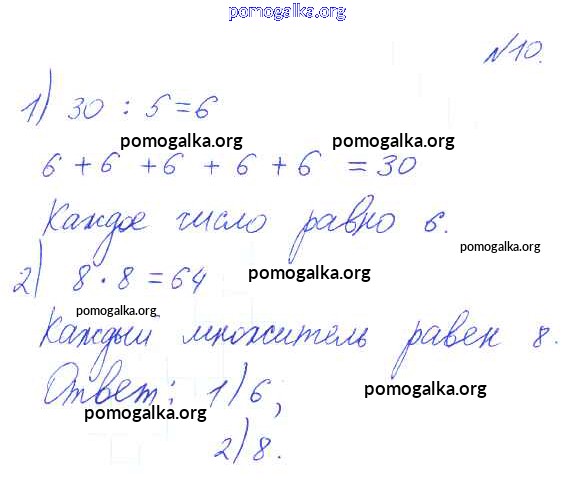 pomogalka.org
№10.
1) 30 : 5 = 6
pomogalka.org pomogalka.org
6 + 6 + 6 + 6 + 6 = 30
Каждое число равно 6.
pomogalka.org
2) 8 · 8 = 64
pomogalka.org
pomogalka.org
Каждый множитель равен 8.
Ответ: 1) 6;
pomogalka.org
pomogalka.org
2) 8.